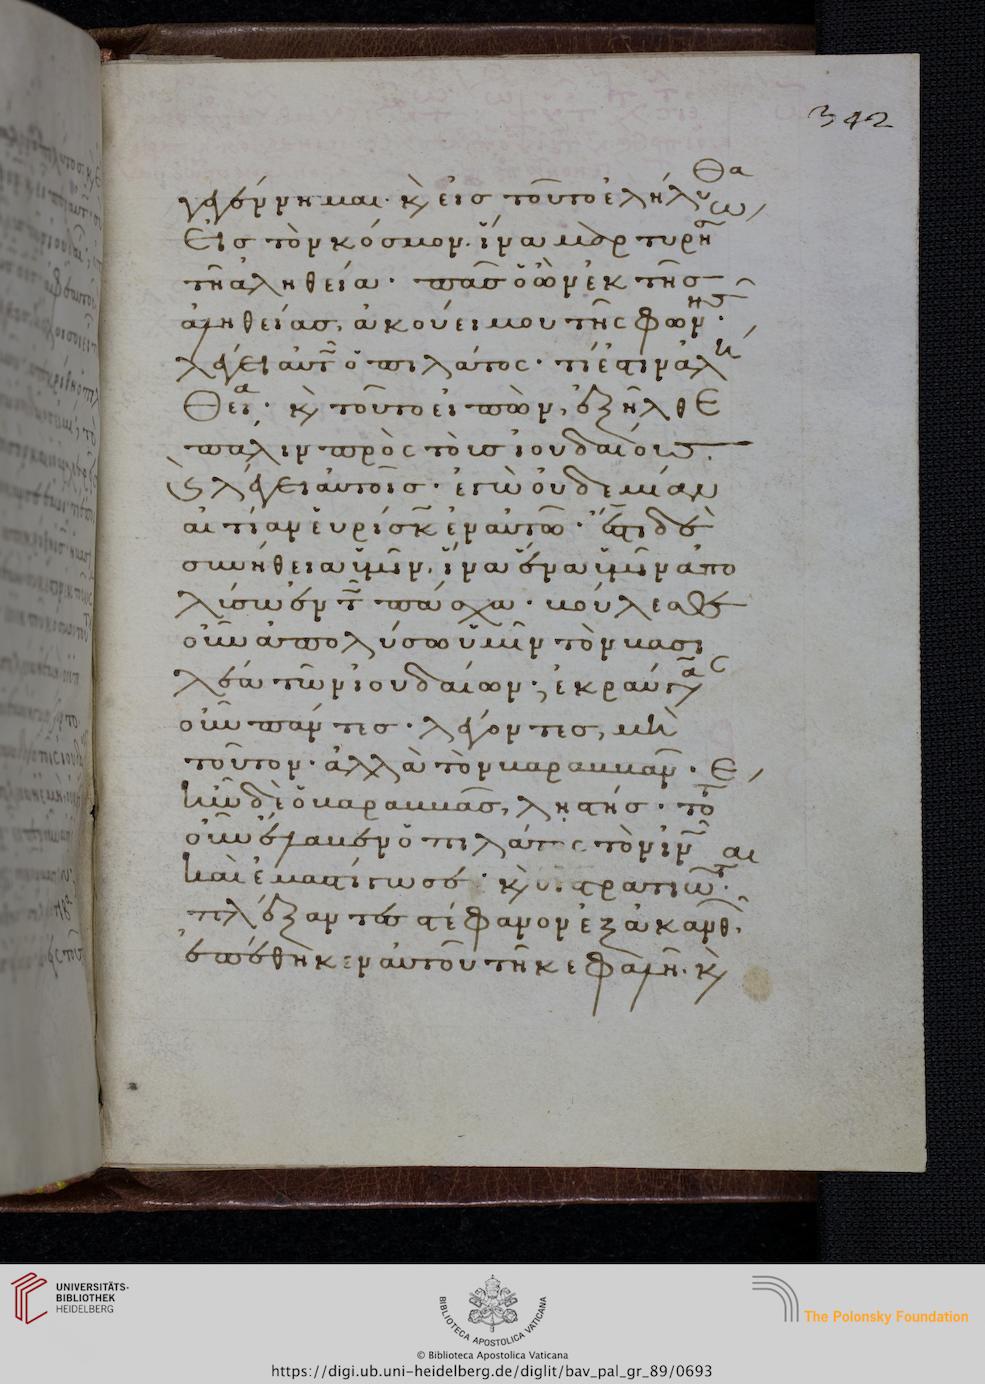 342
γεγέννημαι· κ(αὶ) εἰς τοῦτο ἐλήλυθα
εἰς τὸν κόσμον· ἵνα μαρτυρή(σ)ω
τῆ ἀληθεία· πᾶς ὁ ὢν ἐκ τῆς
ἀληθείας, ἀκούει μου τῆς φωνῆς·
λέγει αὐτ(ῶ) ὁ πιλάτος· τί ἐστιν ἀλή
θεια· κ(αὶ) τοῦτο εἰπὼν, ἐξῆλθε
πάλιν πρὸς τοὺς ἰουδαίους·
κ(αὶ) λέγει αὐτοῖς· ἐγὼ οὐδεμίαν
αἰτίαν εὑρίσκ(ω) ἐν αὐτῶ· ἔστι δὲ
συνήθεια ὑμῖν, ἵνα ἕνα ὑμῖν ἀπο
λύσω ἐν τ(ῶ) πάσχα· βούλεσθε
οὖν ἀπολύσω ὑμῖν τὸν βασι
λέα τῶν ἰουδαίων· ἐκραύγασ(αν)
οὖν πάντες· λέγοντες, μὴ
τοῦτον· ἀλλὰ τὸν βαραββᾶν· ἦν
δὲ ὁ βαραββᾶς, ληστής· τό(τε)
οὖν ἔλαβεν ὁ πιλάτος τὸν ι(ησοῦ)ν
καὶ ἐμαστίγωσε· κ(αὶ) οἱ στρατιῶτ(αι)
πλέξαντες στέφανον ἐξ ἀκανθ(ῶν),
ἐπέθηκεν αὐτοῦ τῆ κεφαλῆ· κ(αὶ)
UNIVERSITÄTS-
BIBLIOTHEK
HEIDELBERG
BIBLIOTECA APOSTOLICA VATICANA
The Polonsky Foundation
© Biblioteca Apostolica Vaticana
https://digi.ub.uni-heidelberg.de/diglit/bav_pal_gr_89/0693